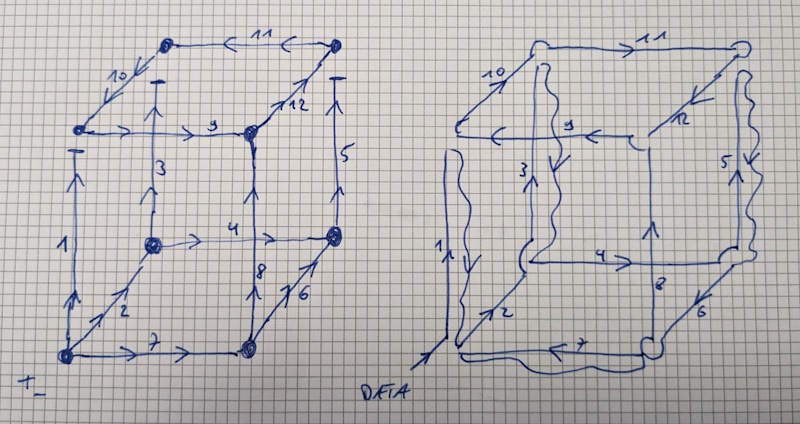 11
10
12
9
3
5
4
1
8
2
6
7
+-
11
10
12
9
3
5
1
4
8
2
6
7
DATA